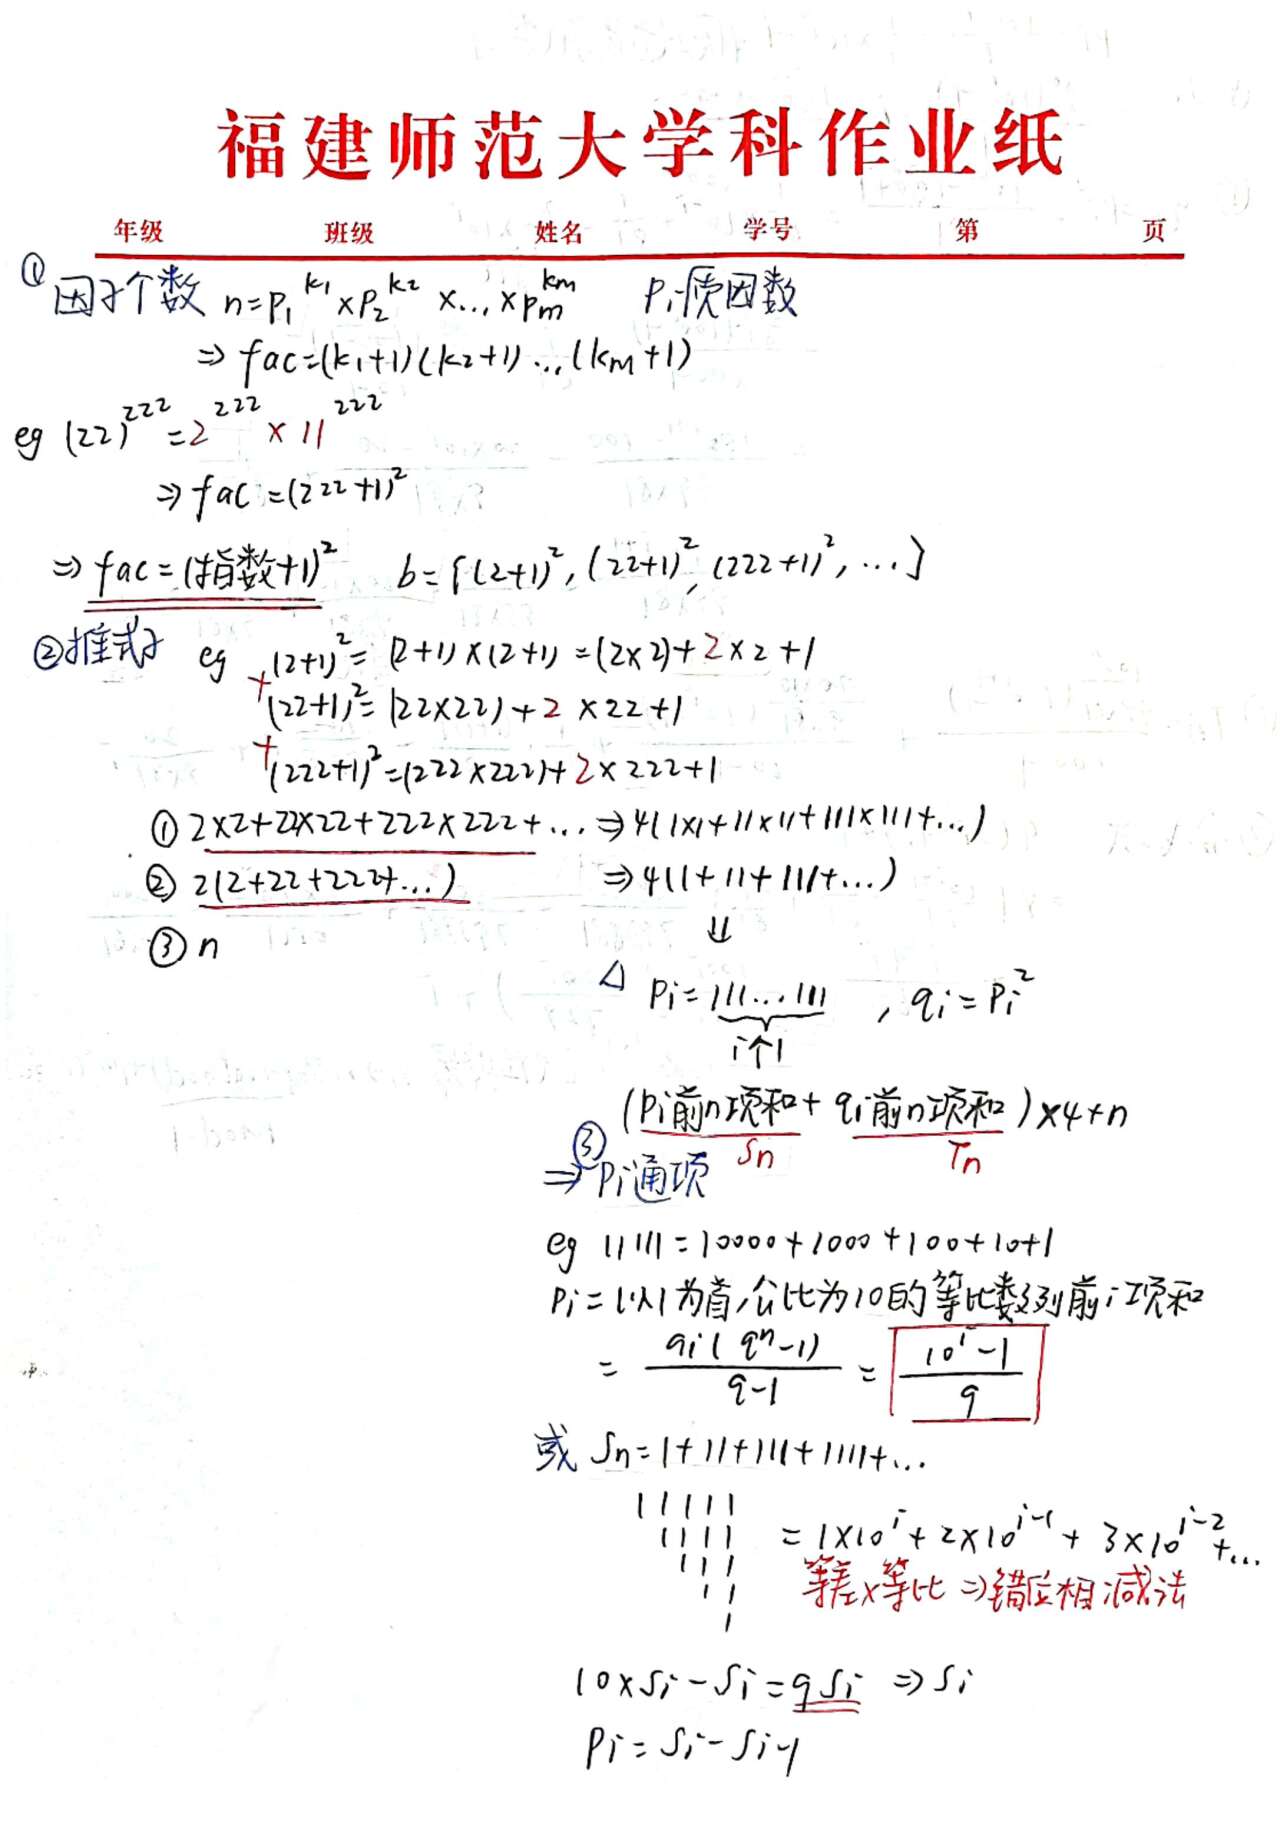 福建师范大学科作业纸
年级 班级 姓名 学号 第 页
① 因子个数 n=p₁^k₁ × p₂^k₂ × ... × pm^km pi质因数
⇒ fac=(k₁+1)(k₂+1)...(km+1)
eg (22)^222 = 2^222 × 11^222
⇒ fac=(222+1)²
⇒ fac=(指数+1)² b={(2+1)², (22+1)², (222+1)², ...}
②推式子 eg (2+1)² = (2+1)×(2+1) = (2×2)+2×2+1
+ (22+1)² = (22×22)+2×22+1
+ (222+1)² = (222×222)+2×222+1
① 2×2+22×22+222×222+... ⇒ 4(1×1+11×11+111×111+...)
② 2(2+22+222+...) ⇒ 4(1+11+111+...)
③ n ⇓
△ pi = 111...111 , qi = pi²
i个1
(pi前n项和 + qi前n项和)×4+n
Sn Tn
③ ⇒ pi通项
eg 11111 = 10000+1000+100+10+1
pi = 以1为首,公比为10的等比数列前i项和
= ai(q^n-1)/(q-1) = (10^i-1)/9
或 Sn = 1+11+111+1111+...
1 1 1 1 1
1 1 1 1 = 1×10^i + 2×10^(i-1) + 3×10^(i-2) +...
1 1 1 等差×等比 ⇒ 错位相减法
1 1
1
10×Si - Si = 9Si ⇒ Si
Pi = Si - Si-1